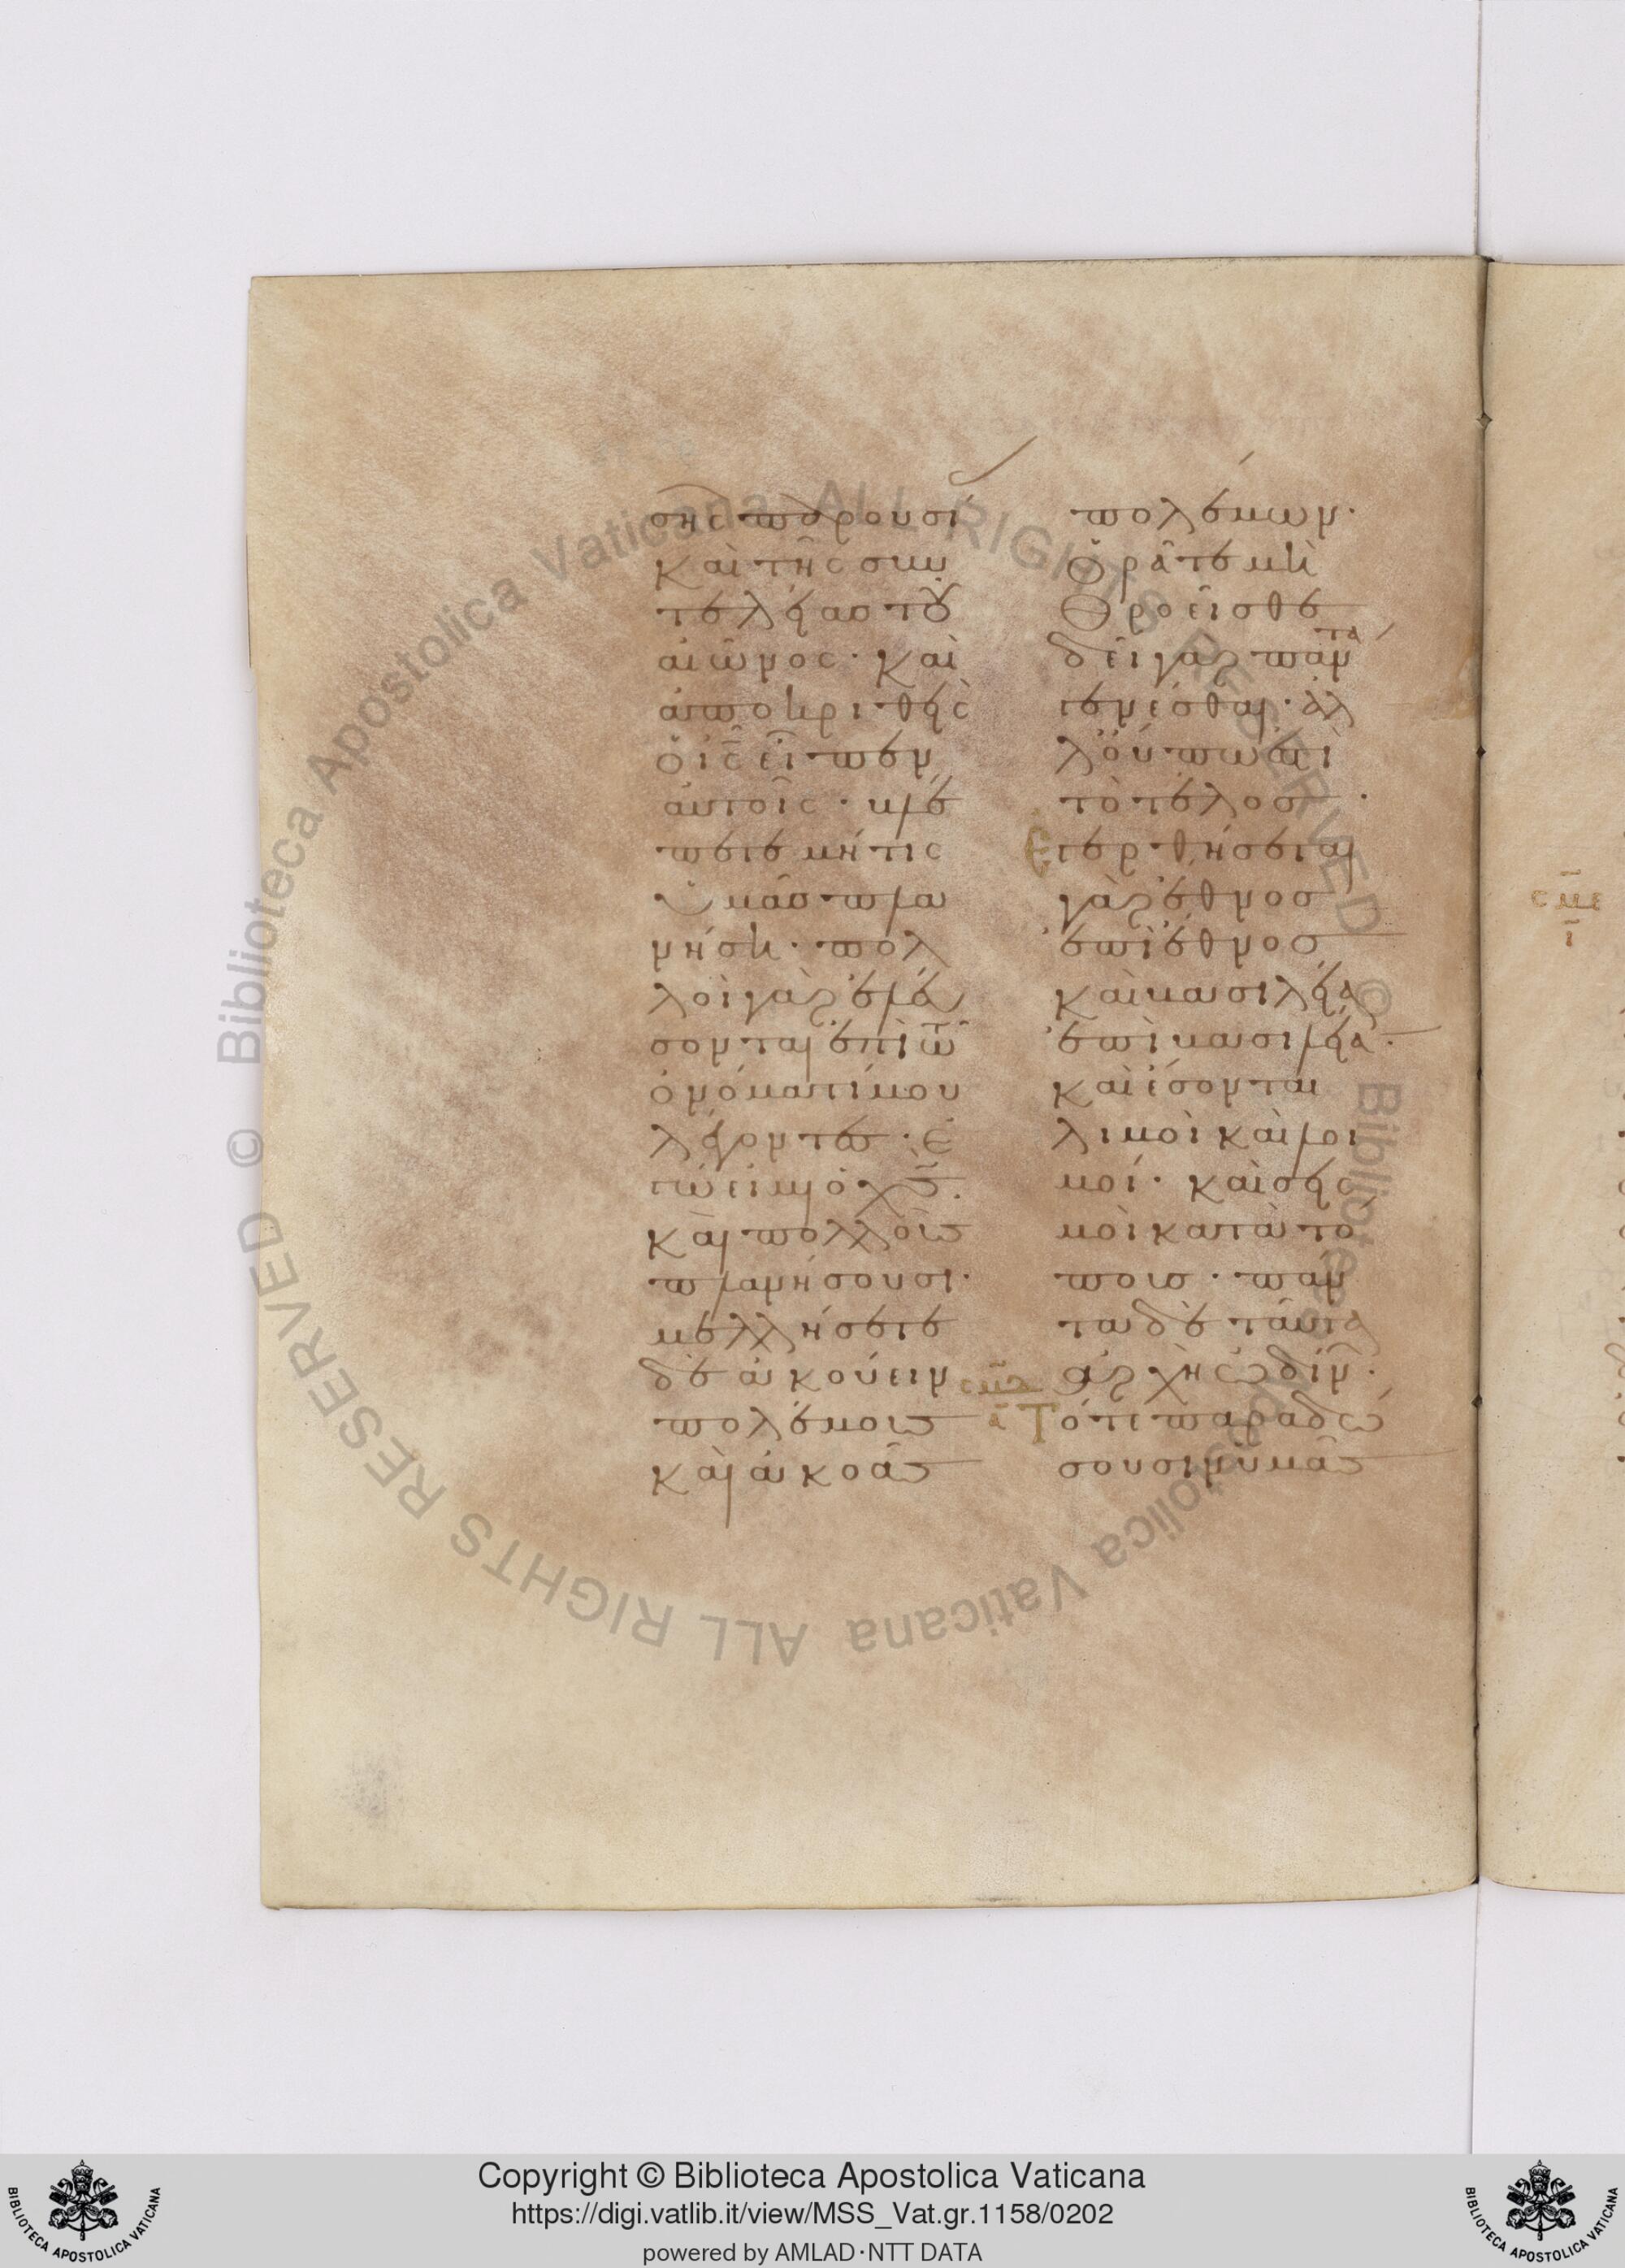 σης παρουσί
καὶ τῆς συν
τελείας τοῦ
αἰῶνος· καὶ
ἀποκριθεὶς
ὁ ι̅ς̅ εἶπεν
αὐτοῖς· βλέ
πετε μήτις
ὑμᾶς πλα
νήση· πολ
λοὶ γὰρ ἐλεύ
σονται ἐπὶ τῶ
ὀνόματί μου
λέγοντες· ἐ
γώ εἰμι ὁ χ̅ς̅·
καὶ πολλοὺς
πλανήσουσι·
μελλήσετε
δὲ ἀκούειν
πολέμους
καὶ ἀκοὰς
πολέμων·
ὁρᾶτε μὴ
θροεῖσθε
δεῖ γὰρ πάντα
γενέσθαι· ἀλ
λ' οὔπω ἐστὶ
τὸ τέλος·
Ἐγερθήσεται
γὰρ ἔθνος
ἐπὶ ἔθνος
καὶ βασιλεία
ἐπὶ βασιλεία·
καὶ ἔσονται
λιμοὶ καὶ λοι
μοί· καὶ σεισ
μοὶ κατὰ τό
πους· πάν
τα δὲ ταῦτα
ἀρχὴ ὠδίν·
Τότε παραδώ
σουσιν ὑμᾶς
Copyright © Biblioteca Apostolica Vaticana
https://digi.vatlib.it/view/MSS_Vat.gr.1158/0202
powered by AMLAD·NTT DATA
BIBLIOTECA APOSTOLICA VATICANA
BIBLIOTECA APOSTOLICA VATICANA
© Biblioteca Apostolica Vaticana ALL RIGHTS RESERVED © Biblioteca Apostolica Vaticana ALL RIGHTS RESERVED